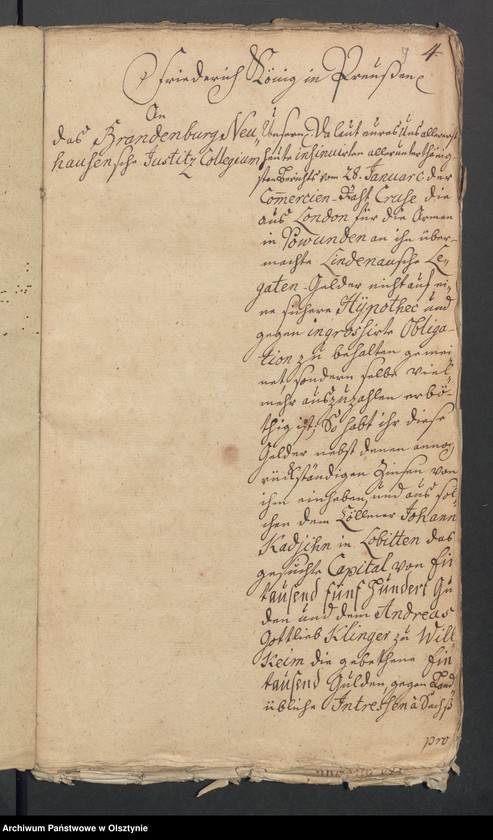 4.
Friederich König in Preußen
An
das Brandenburg Neu-
hausensche Justitz Collegium
Unsern Da laut eures Uns allererst
heute insinuirten allerunterthänig
sten Berichts vom 28. Januarc der
Comercien-Raht Cruse die
aus London für die Armen
in Powunden an ihn über-
machte Lindenausche Le-
gaten-Gelder nicht auf ei-
ne sichere Hÿpothec und
gegen ingrossirte Obliga-
tion zu behalten gemei
net sondern selbe viel-
mehr auszuzahlen erbö-
thig ist; So habt ihr diese
Gelder nebst denen annoch
rückständigen Zinsen von
ihm einheben, und aus sol-
chen dem Cöllmer Johann
Kadjihn in Lobitten das
gesuchte Capital von Ein
tausend fünf Hundert Gul
den und dem Andreas
Gottlieb Klinger zu Will
Keim die gebethene Ein
tausend Gülden, gegen Land
übliche Intressen à Sechs
pro
Archiwum Państwowe w Olsztynie